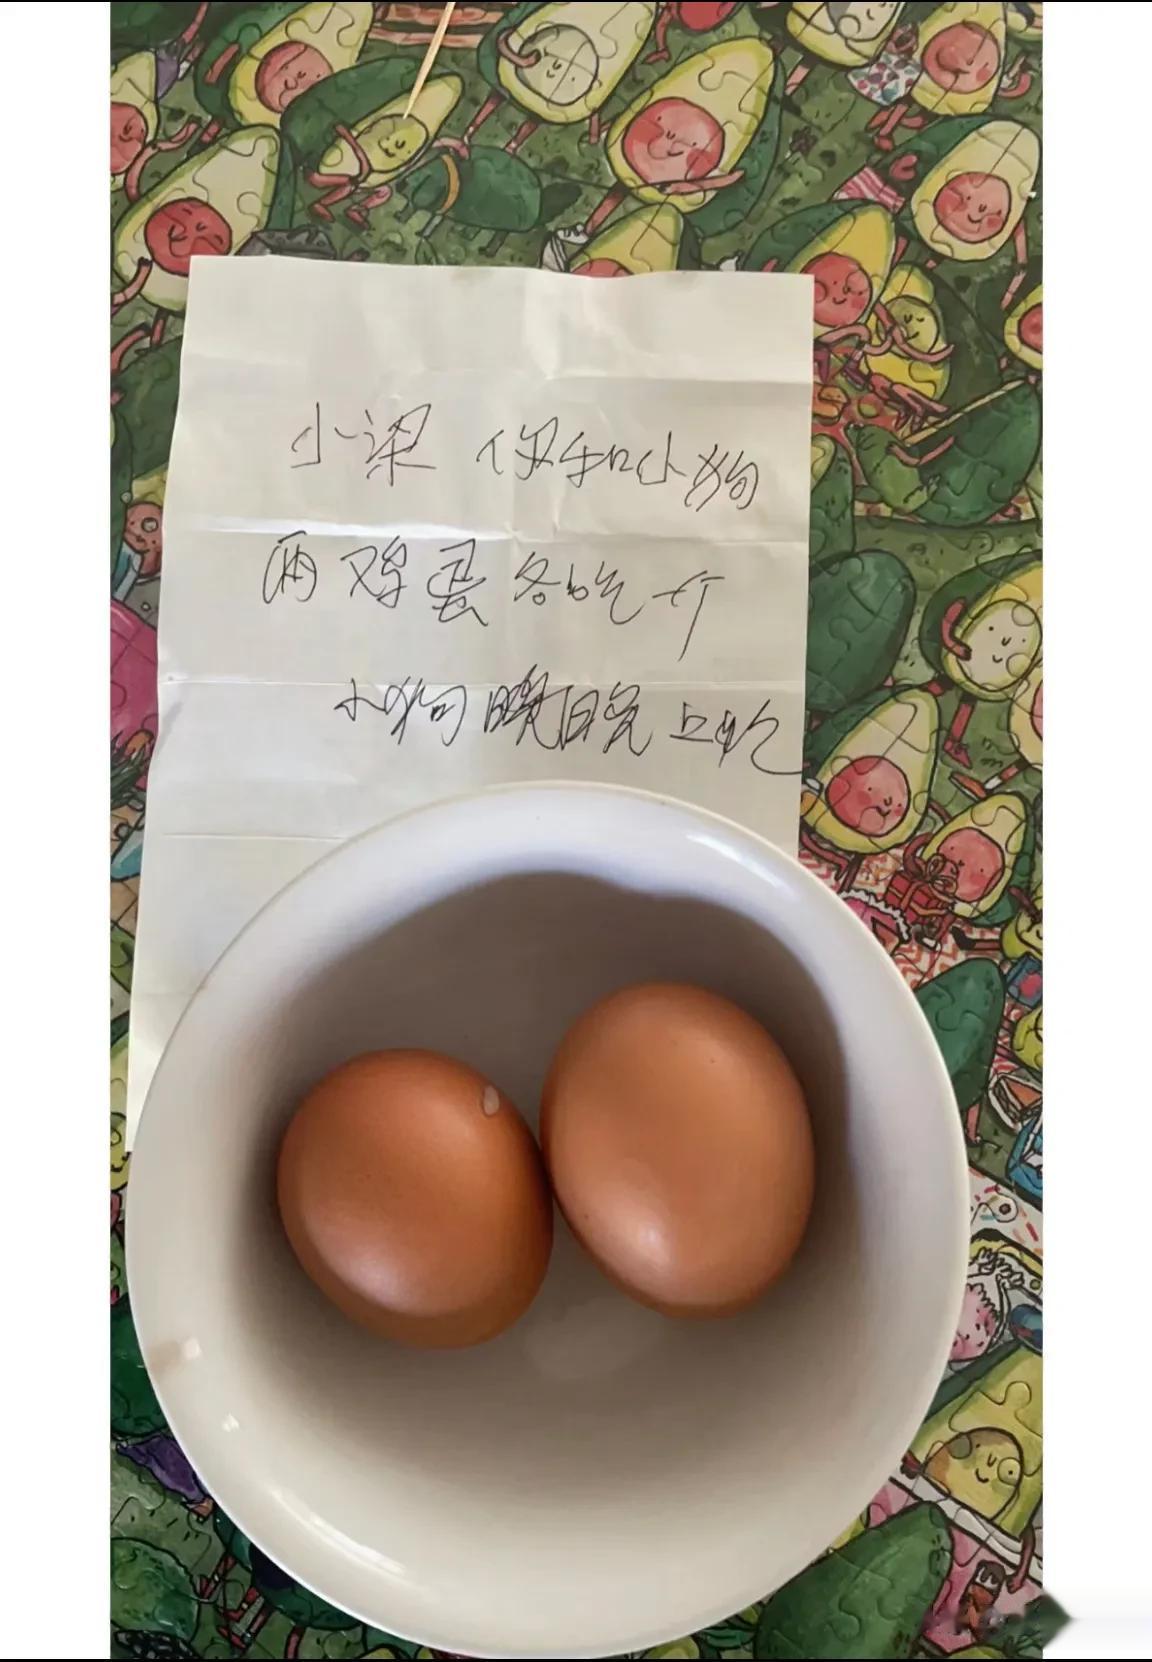 小梁 你和小狗
两鸡蛋各吃一个
小狗晚晚上吃